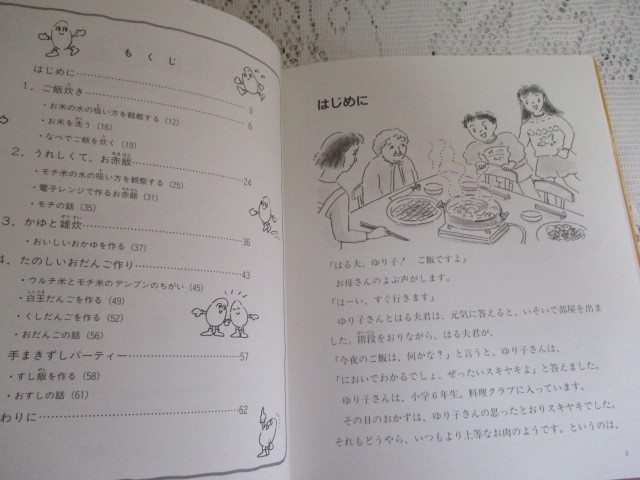 もくじ
はじめに 3
1．ご飯炊き 6
・お米の水の吸い方を観察する（12）
・お米を洗う（16）
・なべでご飯を炊く（19）
2．うれしくて、お赤飯 24
・モチ米の水の吸い方を観察する（25）
・電子レンジで作るお赤飯（31）
・モチの話（35）
3．かゆと雑炊 36
・おいしいおかゆを作る（37）
4．たのしいおだんご作り 43
・ウルチ米とモチ米のデンプンのちがい（45）
・白玉だんごを作る（49）
・くしだんごを作る（52）
・おだんごの話（56）
手まきずしパーティー 57
・すし飯を作る（58）
・おすしの話（61）
わりに 62
はじめに
「はる夫、ゆり子！　ご飯ですよ」
お母さんのよぶ声がします。
「はーい、すぐ行きます」
ゆり子さんとはる夫君は、元気に答えると、いそいで部屋を出ま
した。階段をおりながら、はる夫君が、
「今夜のご飯は、何かな？」と言うと、ゆり子さんは、
「においでわかるでしょ、ぜったいスキヤキよ」と答えました。
ゆり子さんは、小学6年生。料理クラブに入っています。
その日のおかずは、ゆり子さんの思ったとおりスキヤキでした。
それもどうやら、いつもより上等なお肉のようです。というのは、
3